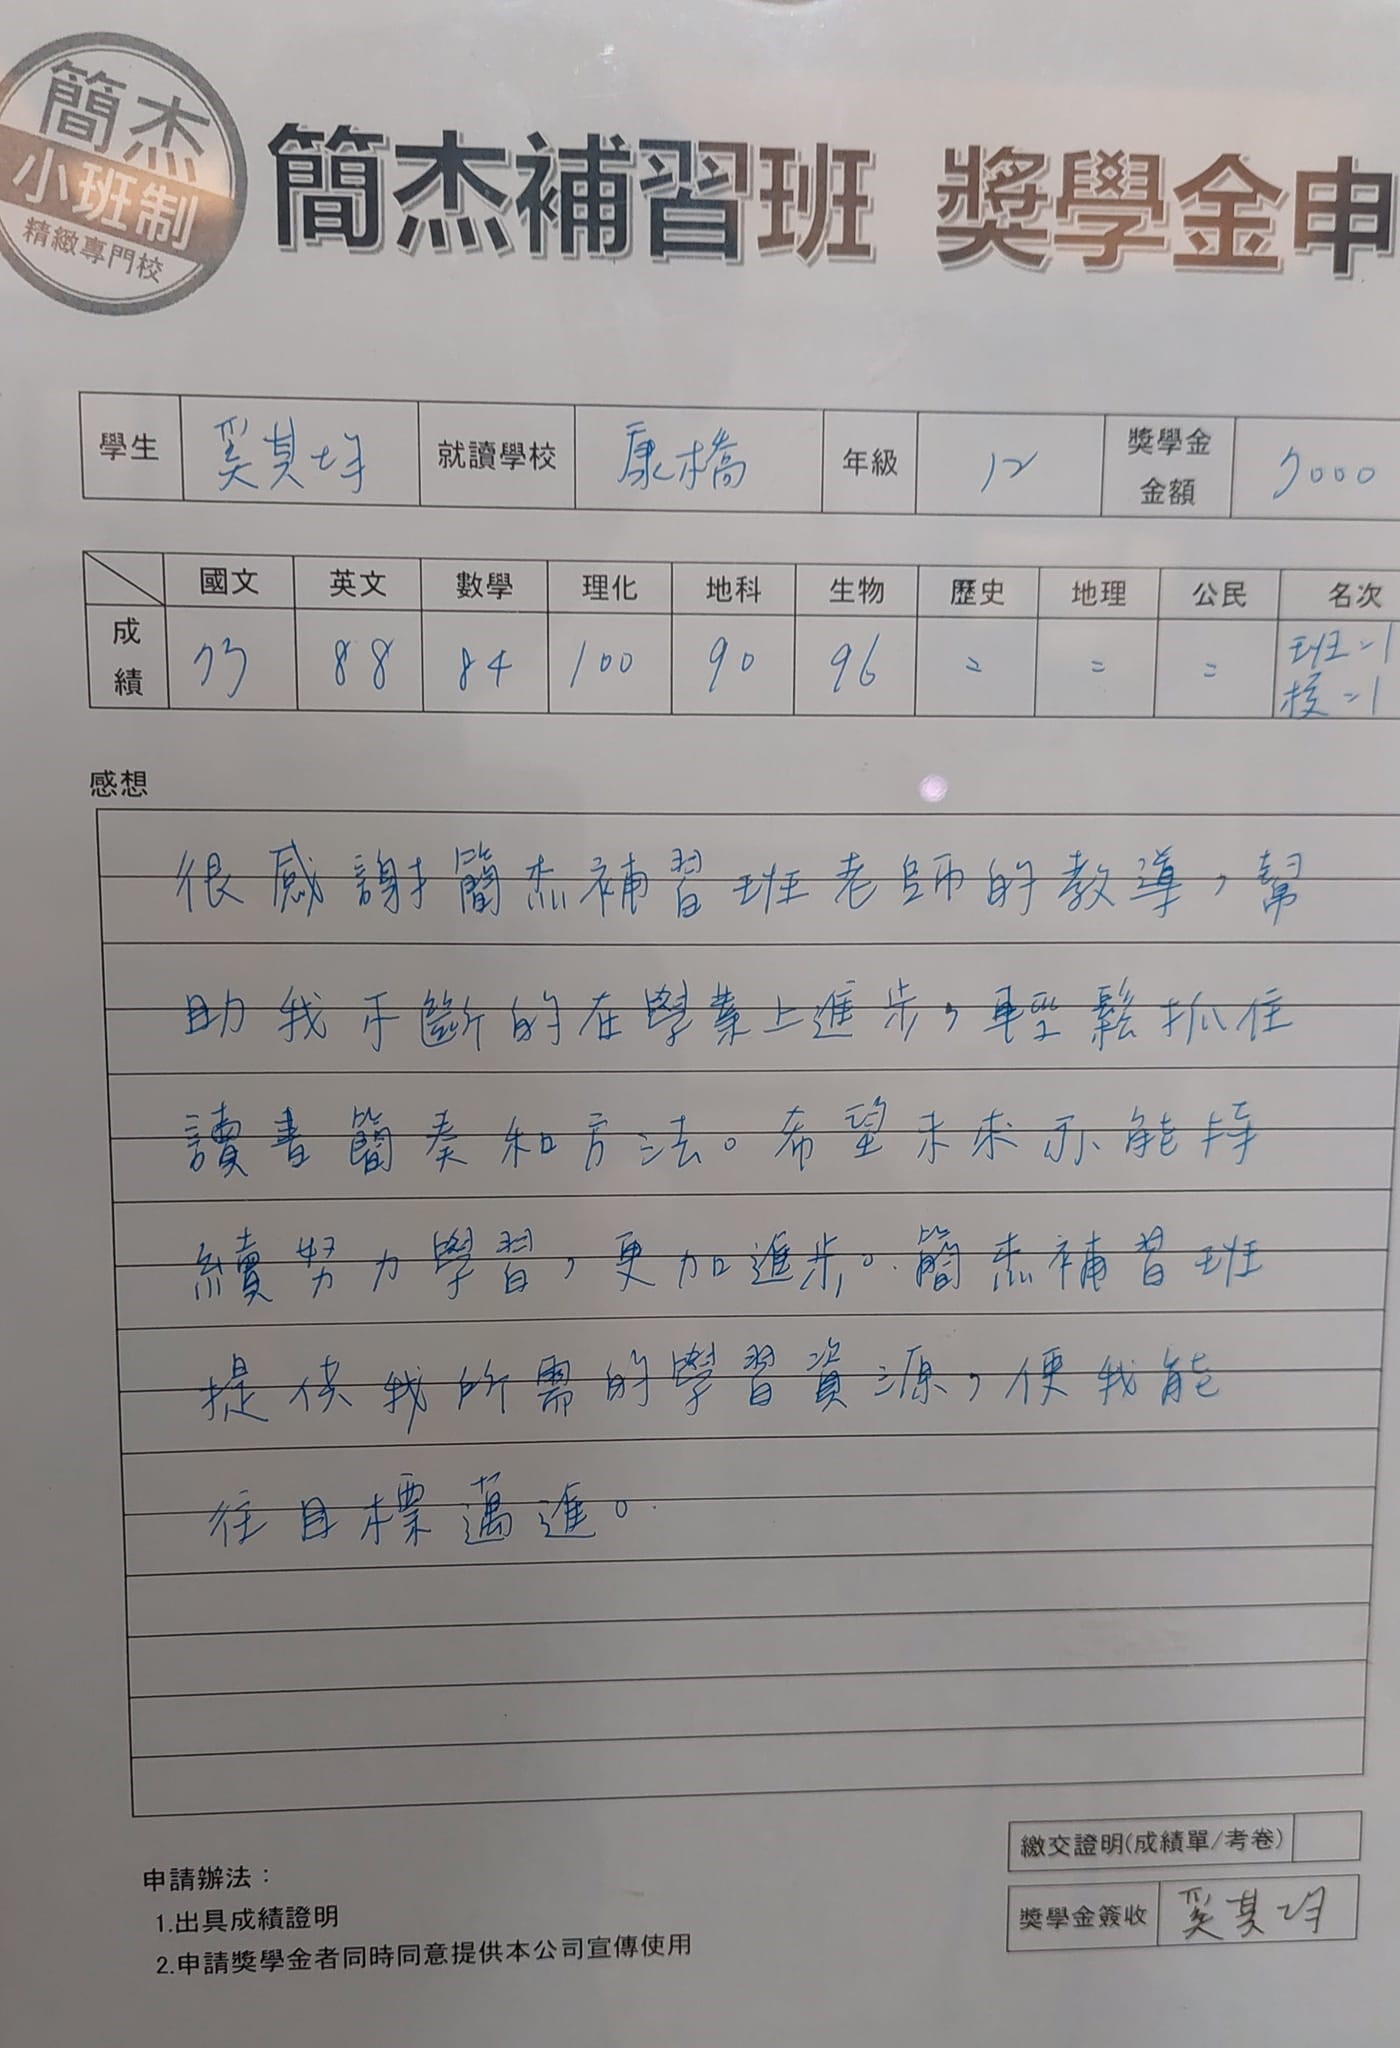 簡杰
小班制
精緻專門校
簡杰補習班 獎學金申
學生 奚其均 就讀學校 康橋 年級 12 獎學金金額 5000
國文 英文 數學 理化 地科 生物 歷史 地理 公民 名次
成績 73 88 84 100 90 96 = = = 班=1 校=1
感想
很感謝簡杰補習班老師的教導，幫
助我不斷的在學業上進步，輕鬆抓住
讀書簡奏和方法。希望未來亦能持
續努力學習，更加進步。簡杰補習班
提供我所需的學習資源，使我能
往目標邁進。
繳交證明(成績單/考卷)
獎學金簽收 奚其均
申請辦法：
1.出具成績證明
2.申請獎學金者同時同意提供本公司宣傳使用